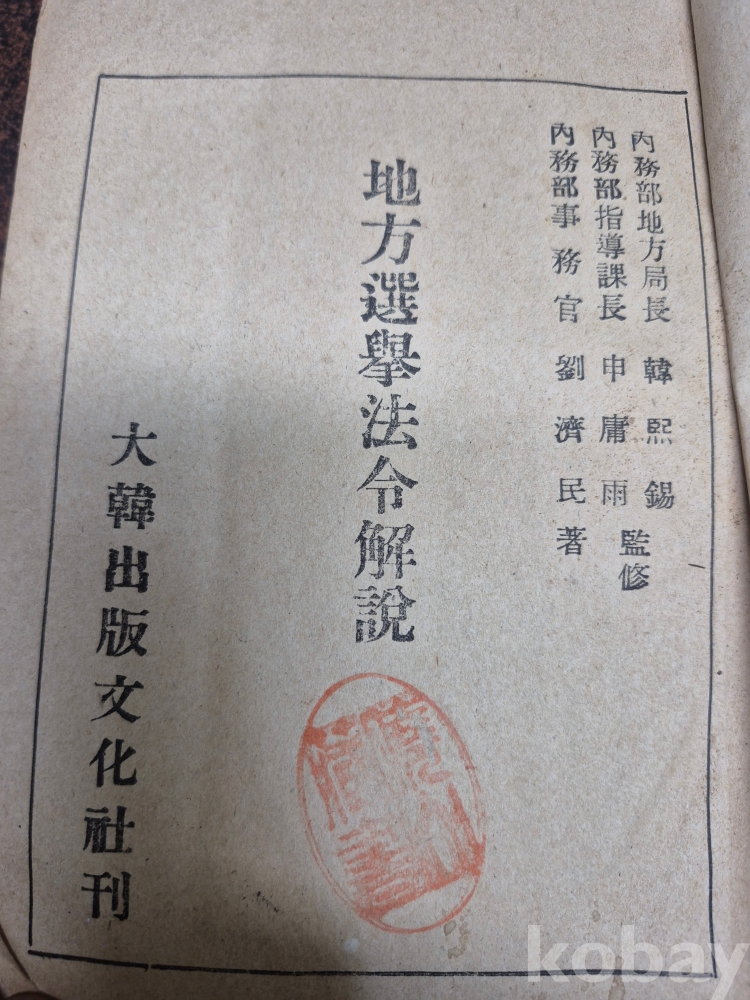 內務部地方局長 韓熙錫
內務部指導課長 申庸雨
監修
內務部事務官 劉濟民著
地方選擧法令解說
大韓出版文化社刊
kobay